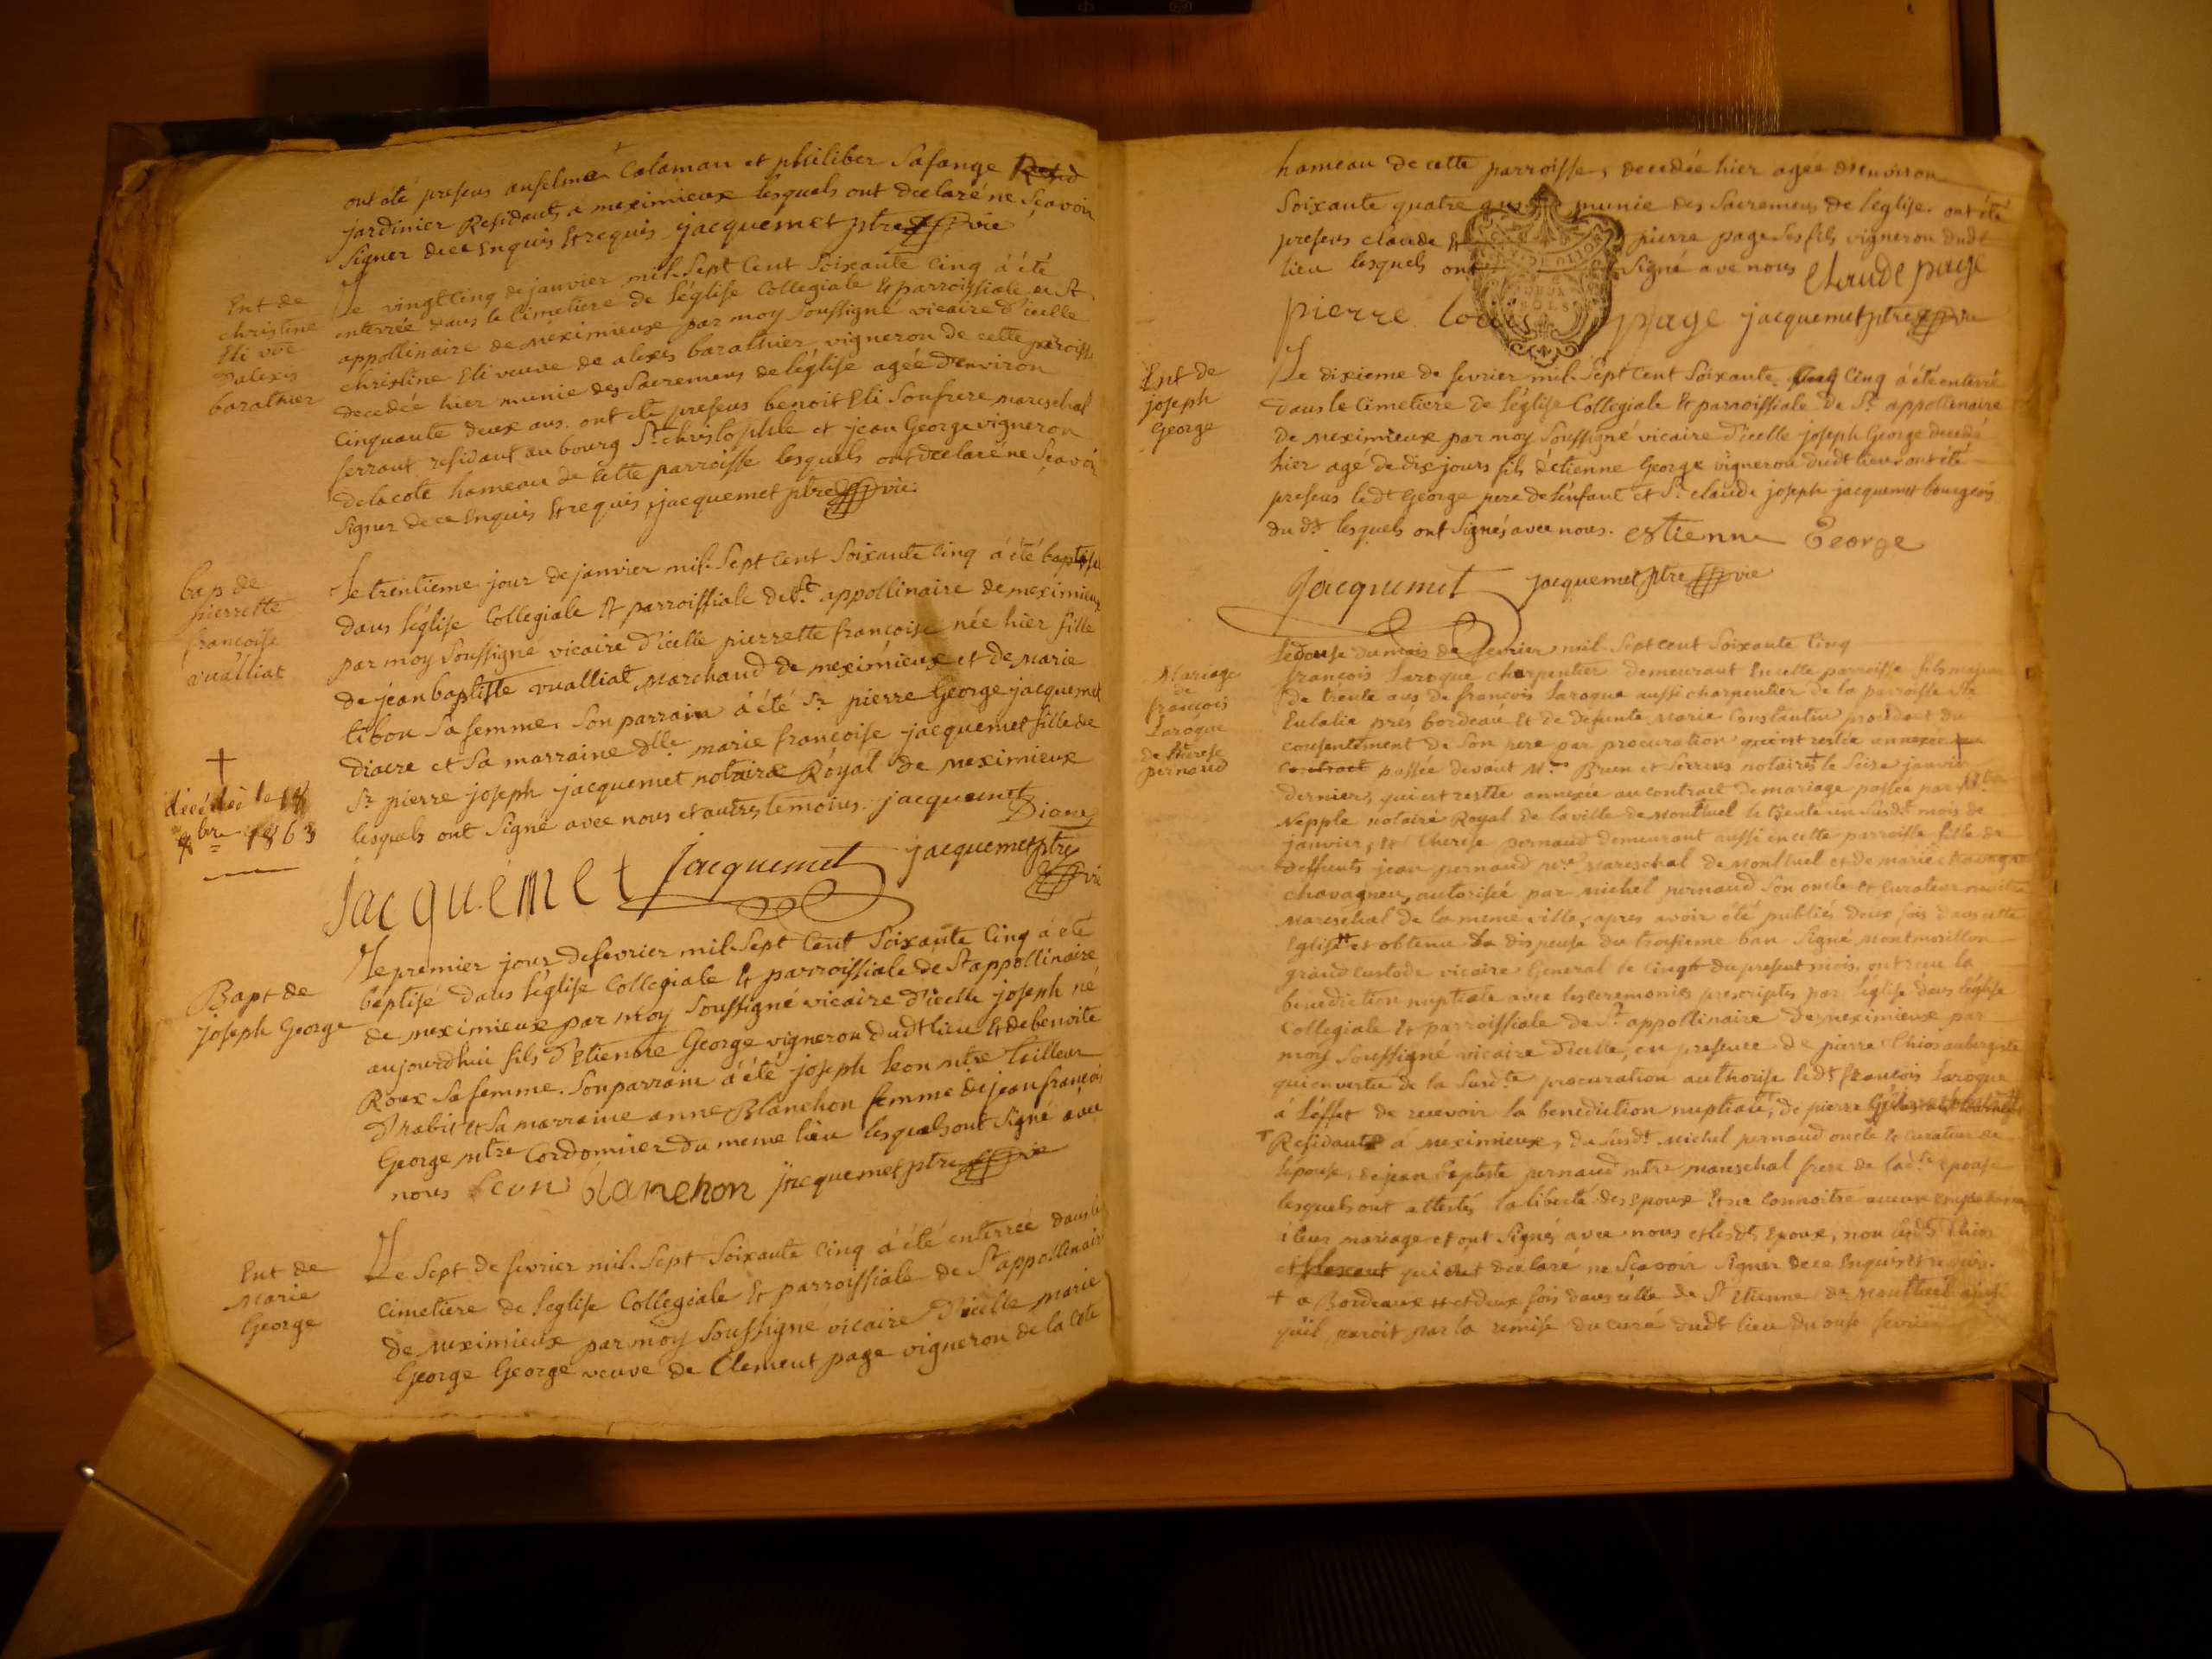 ont été presens anselme Calaman et philiber Lafange
jardinier Residants a meximieux lesquels ont declaré ne Sçavoir
signer de ce Enquis et requis jacquemet ptre vic
Ent de
christine
Eli vve
d'alexis
barathier
Le vingtcinq de janvier mil-Sept Cent Soixante cinq á été
enterrée dans le Cimetiere de l'église Collegiale et parroissiale de St
appollinaire de meximieux par moy soussigné vicaire d'icelle
christine Eli veuve de alexis barathier vigneron de cette parroisse
decedée hier munie des Sacremens de l'église agée d'environ
Cinquante deux ans. ont été presens benoit Eli Son frere mareschal
ferrant residant au bourg St christophle et jean George vigneron
de la cote hameau de cette parroisse lesquels ont declaré ne Sçavoir
Signer de ce Enquis et requis jacquemet ptre vic
bap de
pierrette
françoise
vualliat
Le trentieme jour de janvier mil-Sept Cent Soixante Cinq á été baptisée
dans l'église Collegiale et parroissiale de St appollinaire de meximieux
par moy Soussigné vicaire d'icelle pierrette françoise née hier fille
de jean baptiste vualliat Marchand de meximieux et de Marie
tibon Sa femme. Son parrain á été Sr pierre George jacquemet
Diacre et Sa marraine dlle marie françoise jacquemet fille de
Sr pierre joseph jacquemet notaire Royal de meximieux
lesquels ont Signé avec nous et autres temoins. jacquemet
Diacre
† décédée le 18
8bre 1863
jacquemet jacquemet jacquemet ptre
vic
Bapt de
joseph George
Le premier jour de fevrier mil-Sept Cent Soixante Cinq á été
baptisé dans l'église Collegiale et parroissiale de St appollinaire
de meximieux par moy Soussigné vicaire d'icelle joseph né
aujourdhui fils d'Etienne George vigneron dudt lieu et de benoite
Roux Sa femme. Son parrain á été joseph Leon mtre tailleur
d'habit et Sa marraine anne Blanchon femme de jean françois
George mtre Cordonnier du meme lieu lesquels ont Signé avec
nous Leon blanchon jacquemet ptre vic
Ent de
Marie
George
Le Sept de fevrier mil-Sept Soixante Cinq á été enterrée dans le
Cimetiere de l'eglise Collegiale et parroissiale de St appollinaire
de meximieux par moy Soussigné vicaire d'icelle marie
George George veuve de Clement page vigneron de la Cote
hameau de cette parroisse, decedée hier agée d'environ
Soixante quatre munie des Sacremens de l'eglise. ont été
presens claude et pierre page Ses fils vigneron dudt
lieu lesquels ont Signé avec nous claude page
pierre page jacquemet ptre vic
Ent de
joseph
George
Le dixieme de fevrier mil-Sept Cent Soixante Cinq á été enterré
dans le Cimetiere de l'église Collegiale et parroissiale de St appollinaire
de Meximieux par moy Soussigné vicaire d'icelle joseph George decedé
hier agé de dix jours fils d'étienne George vigneron dudt lieu ont été
presens ledt George pere de l'enfant et Sr claude joseph jacquemet bourgeois
du dt lesquels ont Signés avec nous. estienne George
jacquemet jacquemet ptre vic
Mariage
de
françois
Laroque
de therese
pernaud
Le douse du mois de fevrier mil-Sept cent Soixante Cinq
françois Laroque charpentier demeurant En cette parroisse fils majeur
de trente ans de françois Laroque aussi charpentier de la parroisse Ste
Eulalie prés bordeau et de defunte Marie Constantin procedant du
consentement de Son pere par procuration qui est restée annexée
contract passée devant Mes Brun et notaires le Seise janvier
dernier, qui est restée annexée au contract de mariage passée par Me
Nepple notaire Royal de la ville de Montluel le trente un Susdt mois de
janvier, et therese pernaud demeurant aussi en cette parroisse fille de
deffunts jean pernaud mtre mareschal de Montluel et de marie
chavagneu, autorisée par michel pernaud Son oncle et Curateur maitre
Mareschal de la meme ville, apres avoir été publiés deux fois dans cette
Eglise et obtenu la dispense du troisieme ban Signé Montmorillon
grand Custode vicaire General le cinq du present mois, ont reçu la
benediction nuptiale avec les ceremonies prescriptes par l'église dans l'église
Collegiale et parroissiale de St appollinaire de meximieux par
moy Soussigné vicaire d'icelle, en presence de pierre Chios aubergiste
qui en vertu de la Susdte procuration authorise ledt françois Laroque
á l'effet de recevoir la benediction nuptiale, de pierre
Residants á meximieux, du Susdt Michel pernaud oncle et curateur de
l'épouse, de jean baptiste pernaud mtre mareschal frere de ladte Epouse
lesquels ont attestés la liberté des Epoux et ne connoitre aucun empechement
á leur mariage et ont Signés avec nous et lesdts Epoux, non ledt Chios
qui ont declaré ne Sçavoir Signer de ce Enquis et requis.
+ a Bordeaux ++ et deux fois dans celle de St Etienne de Montluel ainsi
qu'il paroit par la remise du curé dudt lieu du onse fevrier